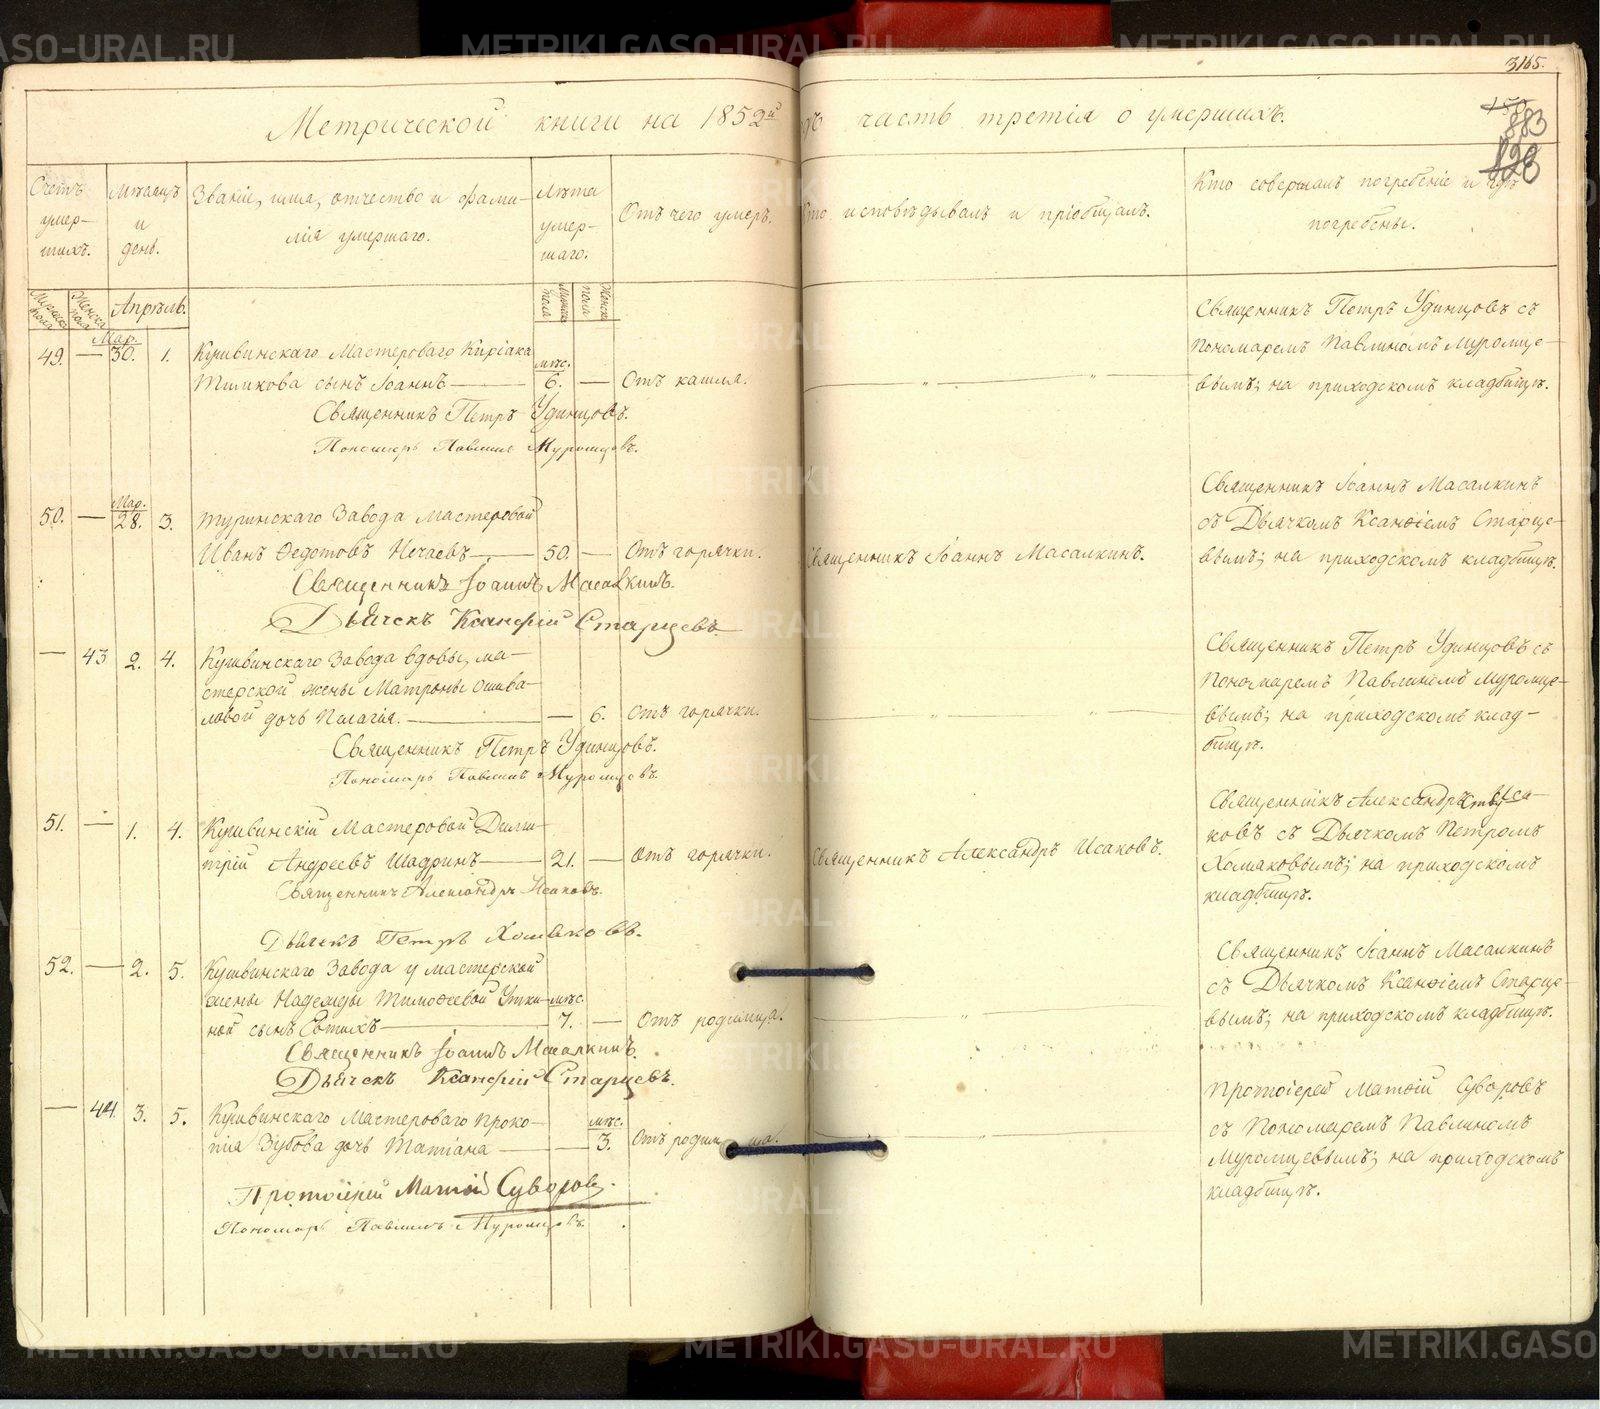 3165.
Метрической книги на 1852й годъ часть третія о умершихъ.
883
128
Счетъ умер-шихъ.
Мѣсяцъ и день.
Званіе, имя, отчество и фами-
лія умершаго.
Лѣта умер-шаго.
Отъ чего умеръ.
Кто исповѣдывалъ и пріобщалъ.
Кто совершалъ погребеніе и гдѣ
погребены.
Мужеска пола
Женска пола
Апрѣль.
Мужеска пола
Женска пола
49. — Мар. 30. 1.
Кушвинскаго Мастероваго Киріака
Тиликова сынъ Іоаннъ — мѣс. 6. — Отъ кашля.
Священникъ Петръ Удинцовъ.
Пономарь Павлинъ Муромцовъ.
Священникъ Петръ Удинцовъ съ
Пономаремъ Павлиномъ Муромце-
вымъ; на приходскомъ кладбищѣ.
50. — Мар. 28. 3.
Туринскаго Завода мастеровой
Иванъ Ѳедотовъ Нечаевъ — 50. — Отъ горячки.
Священникъ Іоаннъ Масалкинъ.
Дьячекъ Ксанфій Старцевъ.
Священникъ Іоаннъ Масалкинъ.
Священникъ Іоаннъ Масалкинъ
съ Дьячкомъ Ксанѳіемъ Старце-
вымъ; на приходскомъ кладбищѣ.
— 43 2. 4.
Кушвинскаго Завода вдовы, ма-
стерской жены Матроны Ошива-
ловой дочь Пелагія. — — 6. Отъ горячки.
Священникъ Петръ Удинцовъ.
Пономарь Павлинъ Муромцовъ.
Священникъ Петръ Удинцовъ съ
Пономаремъ Павлиномъ Муромце-
вымъ; на приходскомъ клад-
бищѣ.
51. — 1. 4.
Кушвинскій Мастеровой Дими-
трій Андреевъ Шадринъ — 21. — Отъ горячки.
Священникъ Александръ Исаковъ.
Дьячекъ Петръ Хомяковъ.
Священникъ Александръ Исаковъ.
Священникъ Александръ Иса-
ковъ съ Дьячкомъ Петромъ
Хомяковымъ; на приходскомъ
кладбищѣ.
52. — 2. 5.
Кушвинскаго Завода у мастерской
жены Надежды Тимоѳеевой Утки-
ной сынъ Евтихъ — мѣс. 7. — Отъ родимца.
Священникъ Іоаннъ Масалкинъ.
Дьячекъ Ксанфій Старцевъ.
Священникъ Іоаннъ Масалкинъ
съ Дьячкомъ Ксанѳіемъ Старце-
вымъ; на приходскомъ кладбищѣ.
— 44. 3. 5.
Кушвинскаго Мастероваго Проко-
пія Зубова дочь Татіана — — мѣс. 3. Отъ родимца.
Протоіерей Матѳій Суворовъ.
Пономарь Павлинъ Муромцовъ.
Протоіерей Матѳій Суворовъ
съ Пономаремъ Павлиномъ
Муромцевымъ; на приходскомъ
кладбищѣ.
METRIKI.GASO-URAL.RU